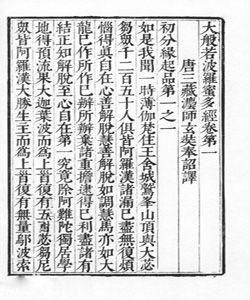 大般若波羅蜜多經卷第一
唐三藏灋師玄奘奉詔譯
初分緣起品第一之一
如是我聞一時薄伽梵住王舍城鷲峯山頂與大苾
芻眾千二百五十人俱皆阿羅漢諸漏已盡無復煩
惱得真自在心善解脫慧善解脫如調慧馬亦如大
龍已作所作已辦所辦棄諸重擔逮得己利盡諸有
結正知解脫至心自在第一究竟除阿難陀獨居學
地得預流果大迦葉波而為上首復有五百苾芻尼
眾皆阿羅漢大勝生主而為上首復有無量鄔波索